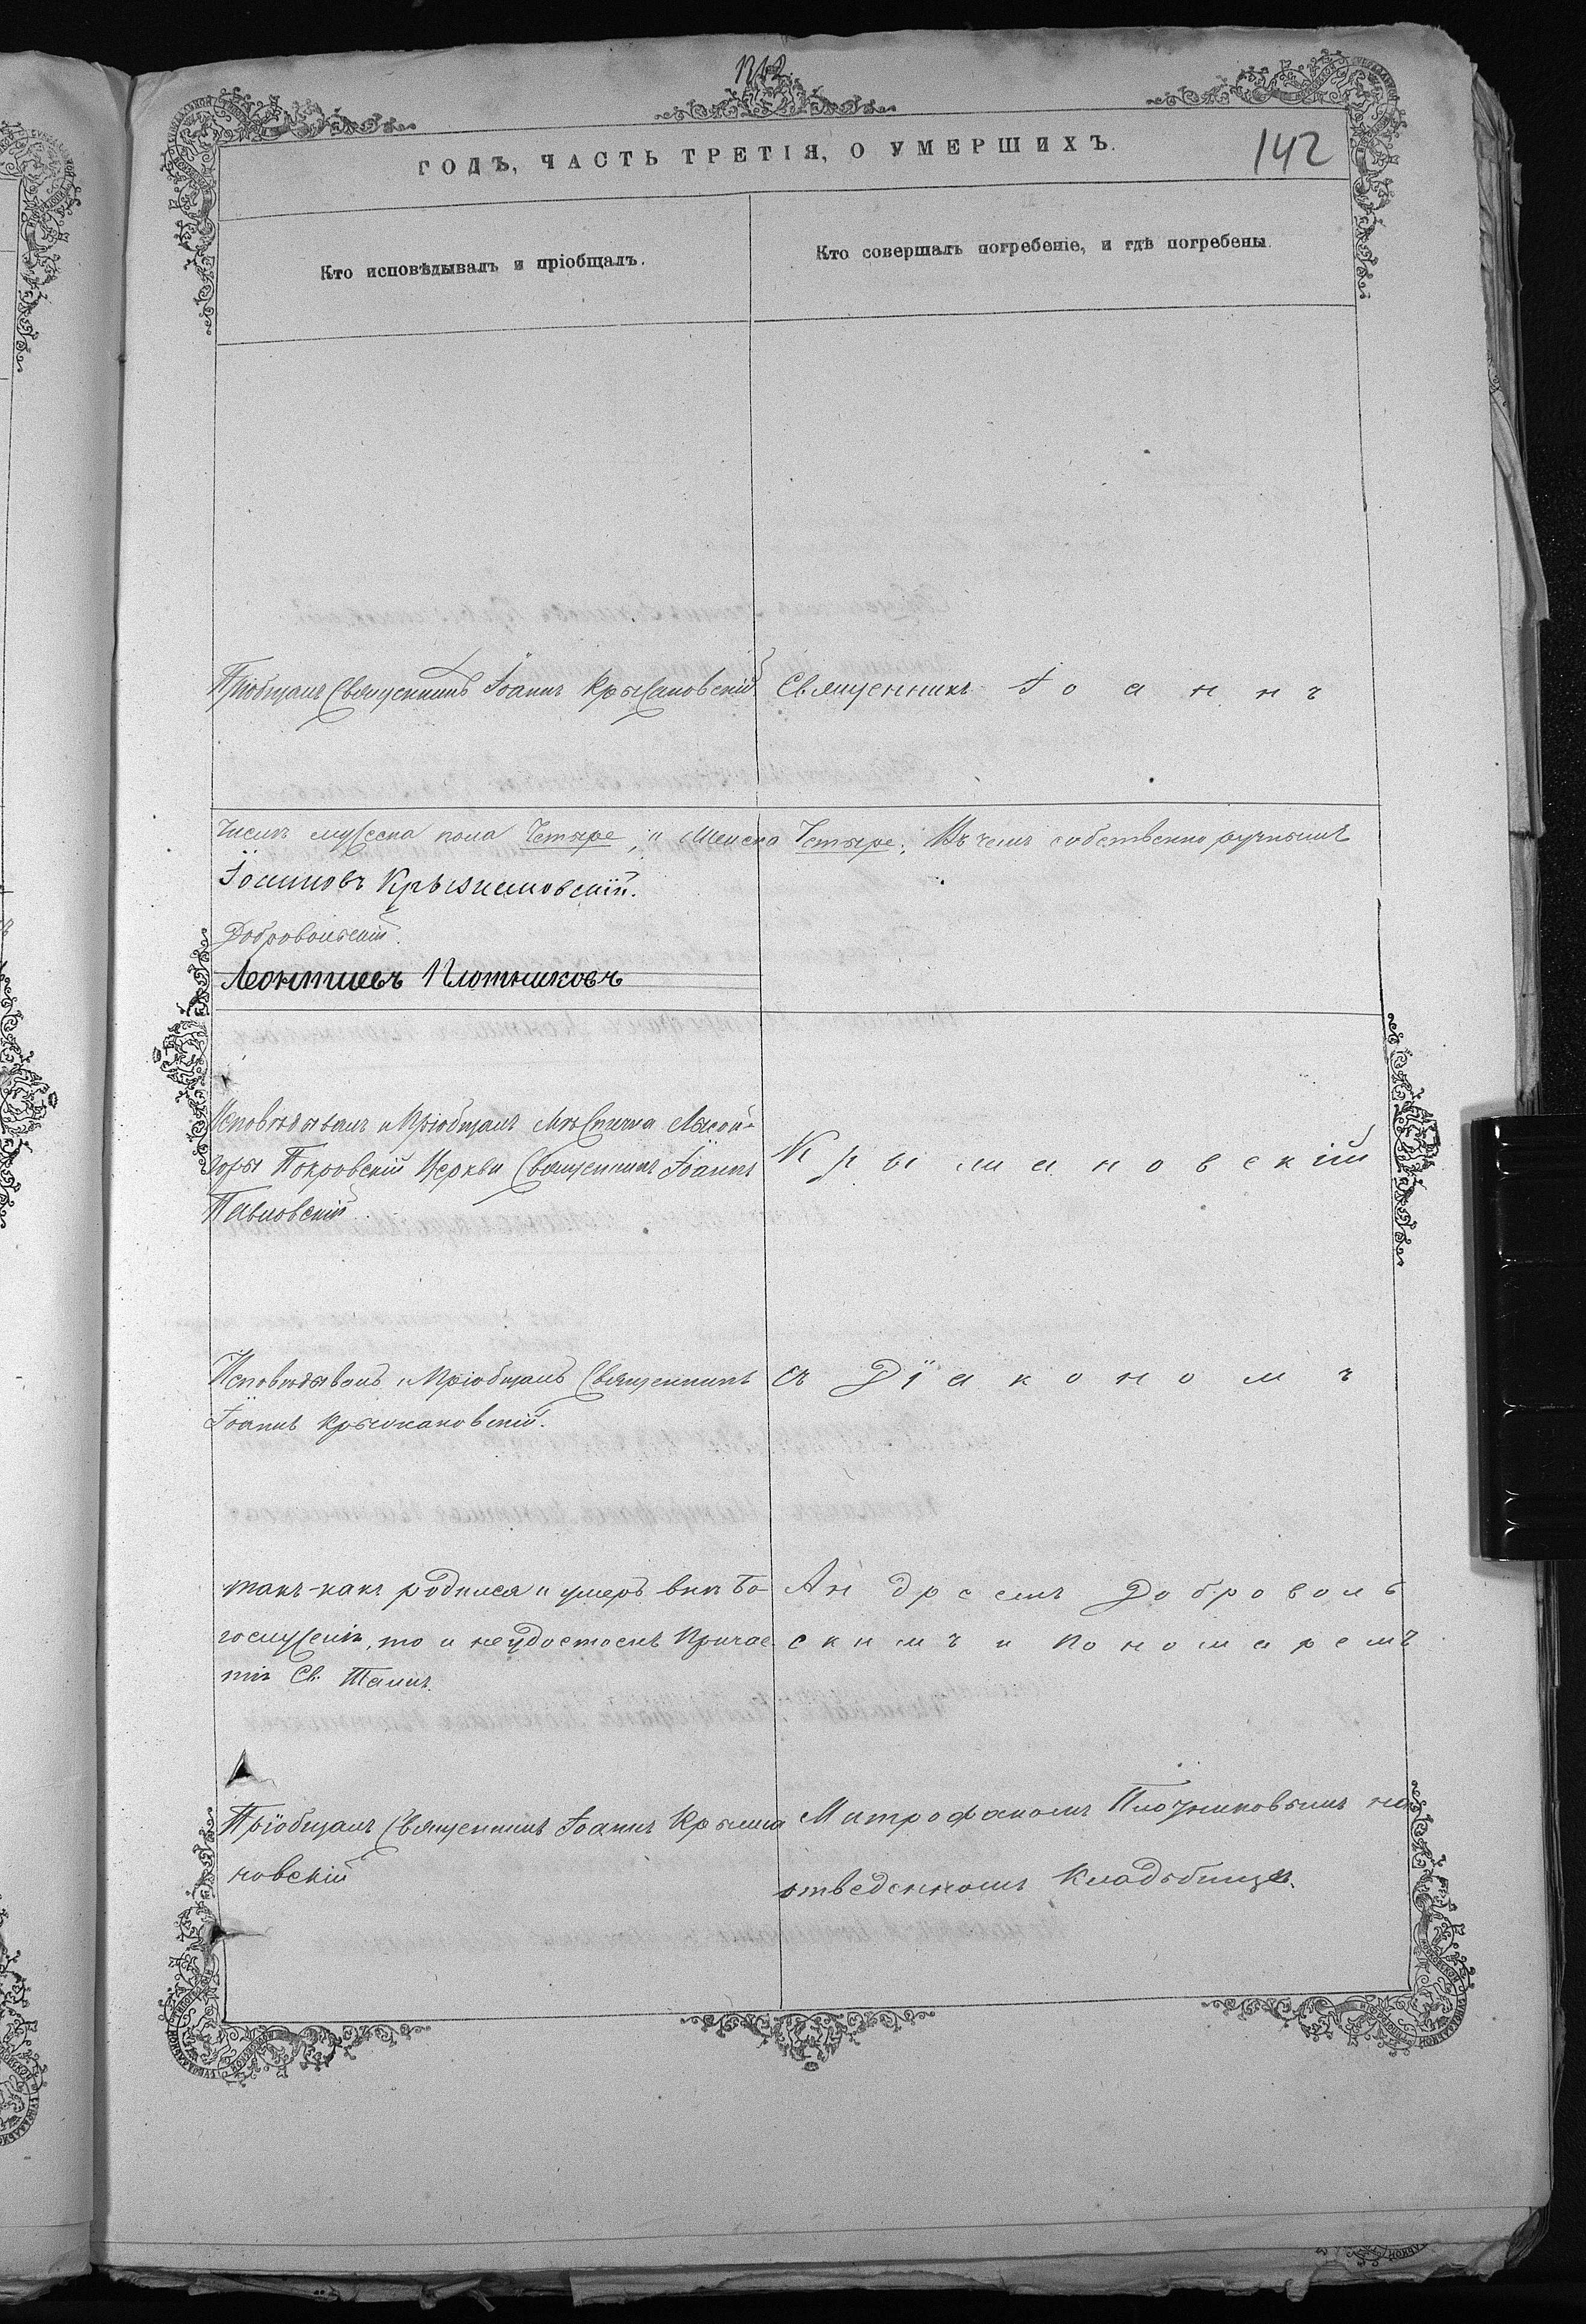 142
ГОДЪ, ЧАСТЬ ТРЕТІЯ, О УМЕРШИХЪ.
142
Кто исповѣдывалъ и пріобщалъ.
Кто совершалъ погребеніе, и гдѣ погребены.
Пріобщалъ Священникъ Іоаннъ Крыжановскій
Священникъ Іоаннъ
Числъ мужеска пола Четыре, и Женска Четыре; Въ чемъ собственно ручнымъ
Іоаиновъ Крыжановскій.
Добровольскій.
Леонтиевъ Плотниковъ
Исповѣдывалъ и Пріобщалъ Мѣстичка Лысой-
горы Покровскій Церкви Священникъ Іоаннъ
Павловскій
Крыжановскій
Исповѣдывалъ и Пріобщалъ Священникъ
Іоаннъ Крыжановскій.
съ Діакономъ
такъ-какъ родился и умеръ внѣ Бо-
гослуженія, то и неудостоенъ Причас-
тія Св. Таинъ.
Андреемъ Доброволь
скимъ и Пономаремъ
Пріобщалъ Священникъ Іоаннъ Крыжа
новскій
Митрофаномъ Плотниковымъ на
отведенномъ Кладбищѣ.